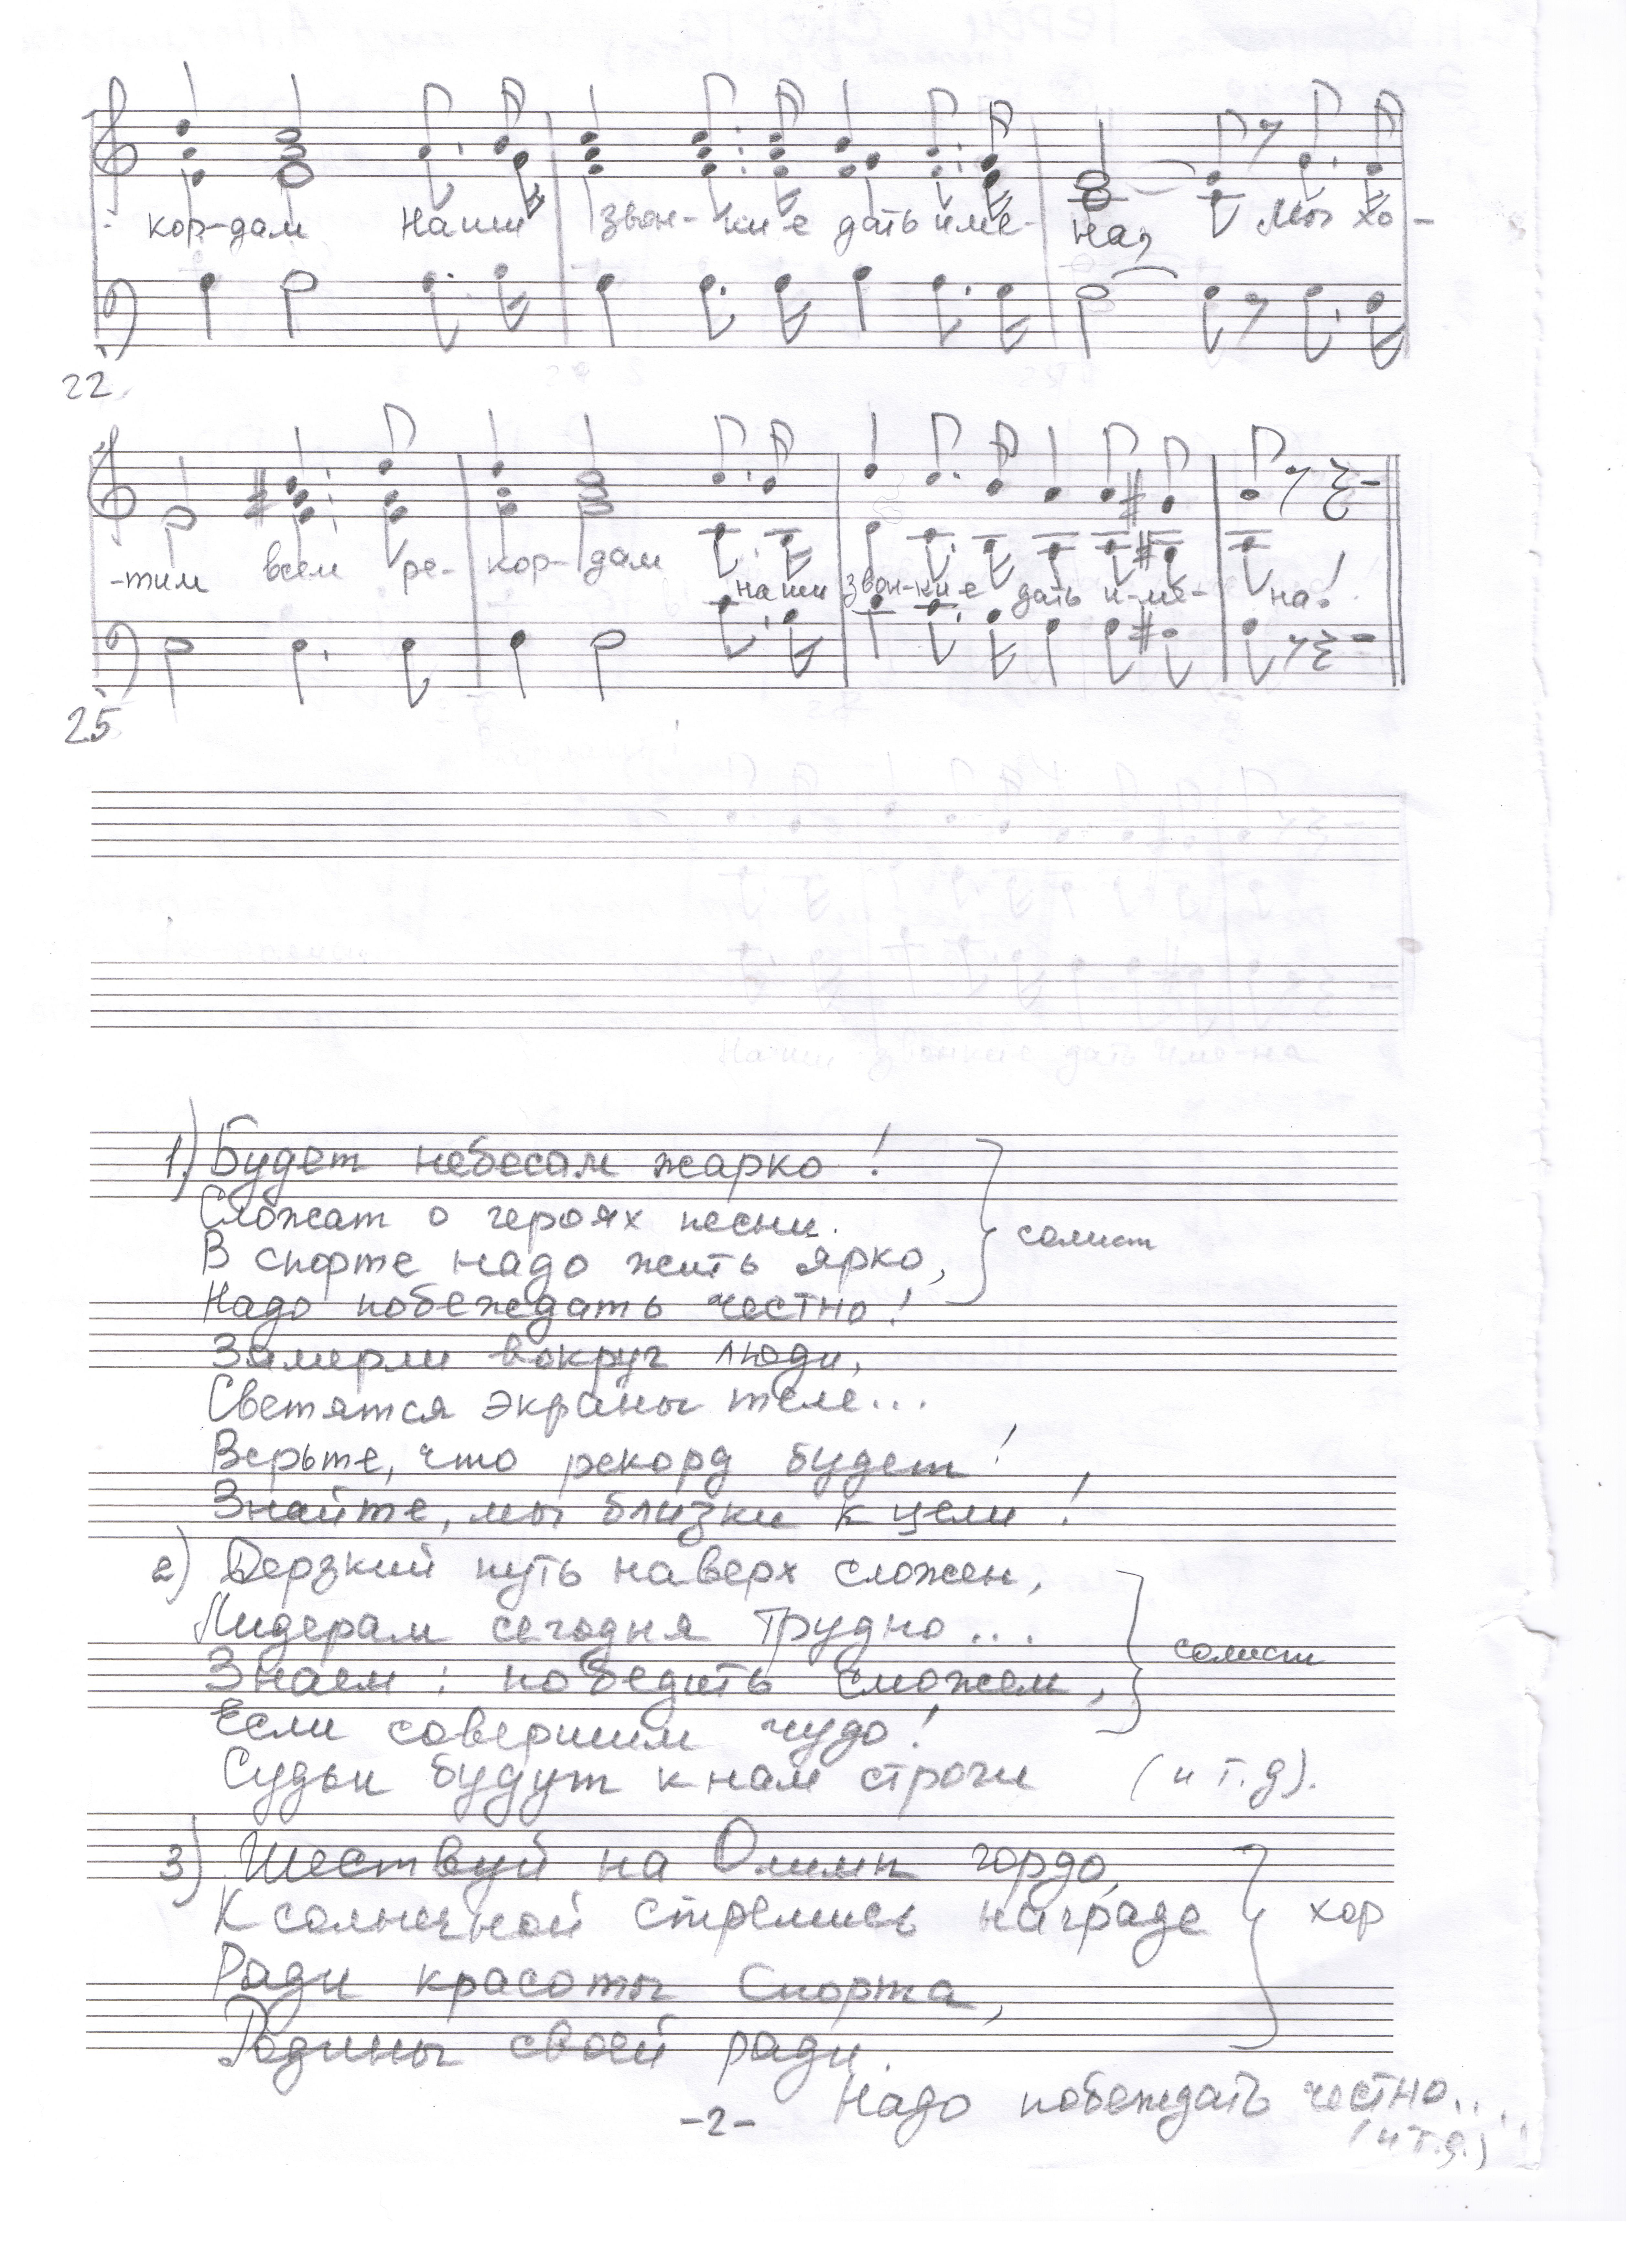 кор-дам Наши звон-ки-е дать име-на, Мы хо-
22
-тим всем ре-кор-дам наши звон-ки-е дать и-ме-на!
25
1) Будет небесам жарко!
Сложат о героях песни.
В спорте надо жить ярко,
солист
Надо побеждать честно!
Замерли вокруг люди,
Светятся экраны теле...
Верьте, что рекорд будет!
Знайте, мы близки к цели!
2) Дерзкий путь наверх сложен,
Лидерам сегодня трудно...
Знаем: победить сможем,
солист
Если совершим чудо!
Судьи будут к нам строги (и т.д).
3) Шествуй на Олимп гордо,
К солнечной стремись награде
хор
Ради красоты Спорта,
Родины своей ради.
Надо побеждать честно...
-2-
(и т.д.)